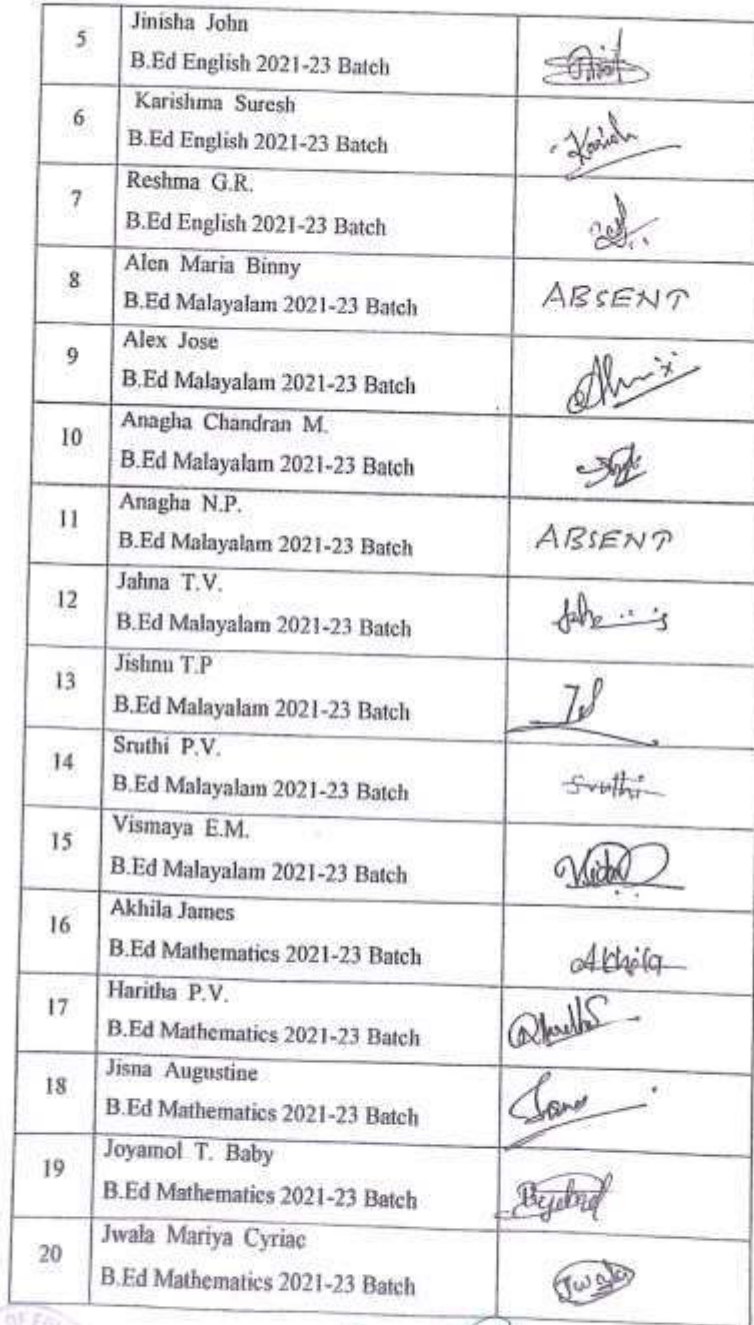 5
Jinisha John
B.Ed English 2021-23 Batch
6
Karishma Suresh
B.Ed English 2021-23 Batch
Karish
7
Reshma G.R.
B.Ed English 2021-23 Batch
8
Alen Maria Binny
B.Ed Malayalam 2021-23 Batch
ABSENT
9
Alex Jose
B.Ed Malayalam 2021-23 Batch
10
Anagha Chandran M.
B.Ed Malayalam 2021-23 Batch
11
Anagha N.P.
B.Ed Malayalam 2021-23 Batch
ABSENT
12
Jahna T.V.
B.Ed Malayalam 2021-23 Batch
13
Jishnu T.P
B.Ed Malayalam 2021-23 Batch
14
Sruthi P.V.
B.Ed Malayalam 2021-23 Batch
Sruthi
15
Vismaya E.M.
B.Ed Malayalam 2021-23 Batch
16
Akhila James
B.Ed Mathematics 2021-23 Batch
Akhila
17
Haritha P.V.
B.Ed Mathematics 2021-23 Batch
18
Jisna Augustine
B.Ed Mathematics 2021-23 Batch
19
Joyamol T. Baby
B.Ed Mathematics 2021-23 Batch
20
Jwala Mariya Cyriac
B.Ed Mathematics 2021-23 Batch
Jwala